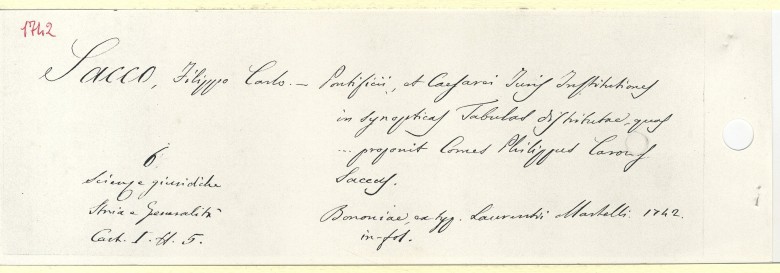 1742
Sacco, Filippo Carlo. — Pontificii, et Caesarei Juris Institutiones
in synopticas Tabulas distributae, quas
... proponit Comes Philippus Carolus
Saccus.
6
Scienze giuridiche
Storia e Generalità
Cart. I. n. 5.
Bononiae, ex typ. Laurentii Martelli. 1742.
in-fol.